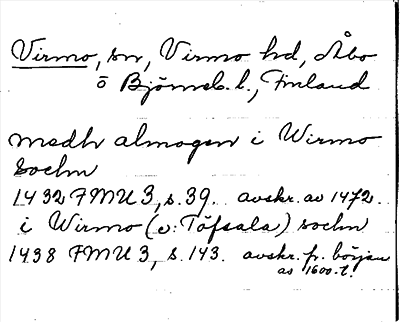 Virmo, sn, Virmo hd, Åbo
o Björneb. l., Finland
medh almogen i Wirmo
sochn
1432 FMU 3, s. 39. avskr. av 1472.
i Wirmo (o: Töfsala) sochn
1438 FMU 3, s. 143. avskr. fr. början
av 1600-t.